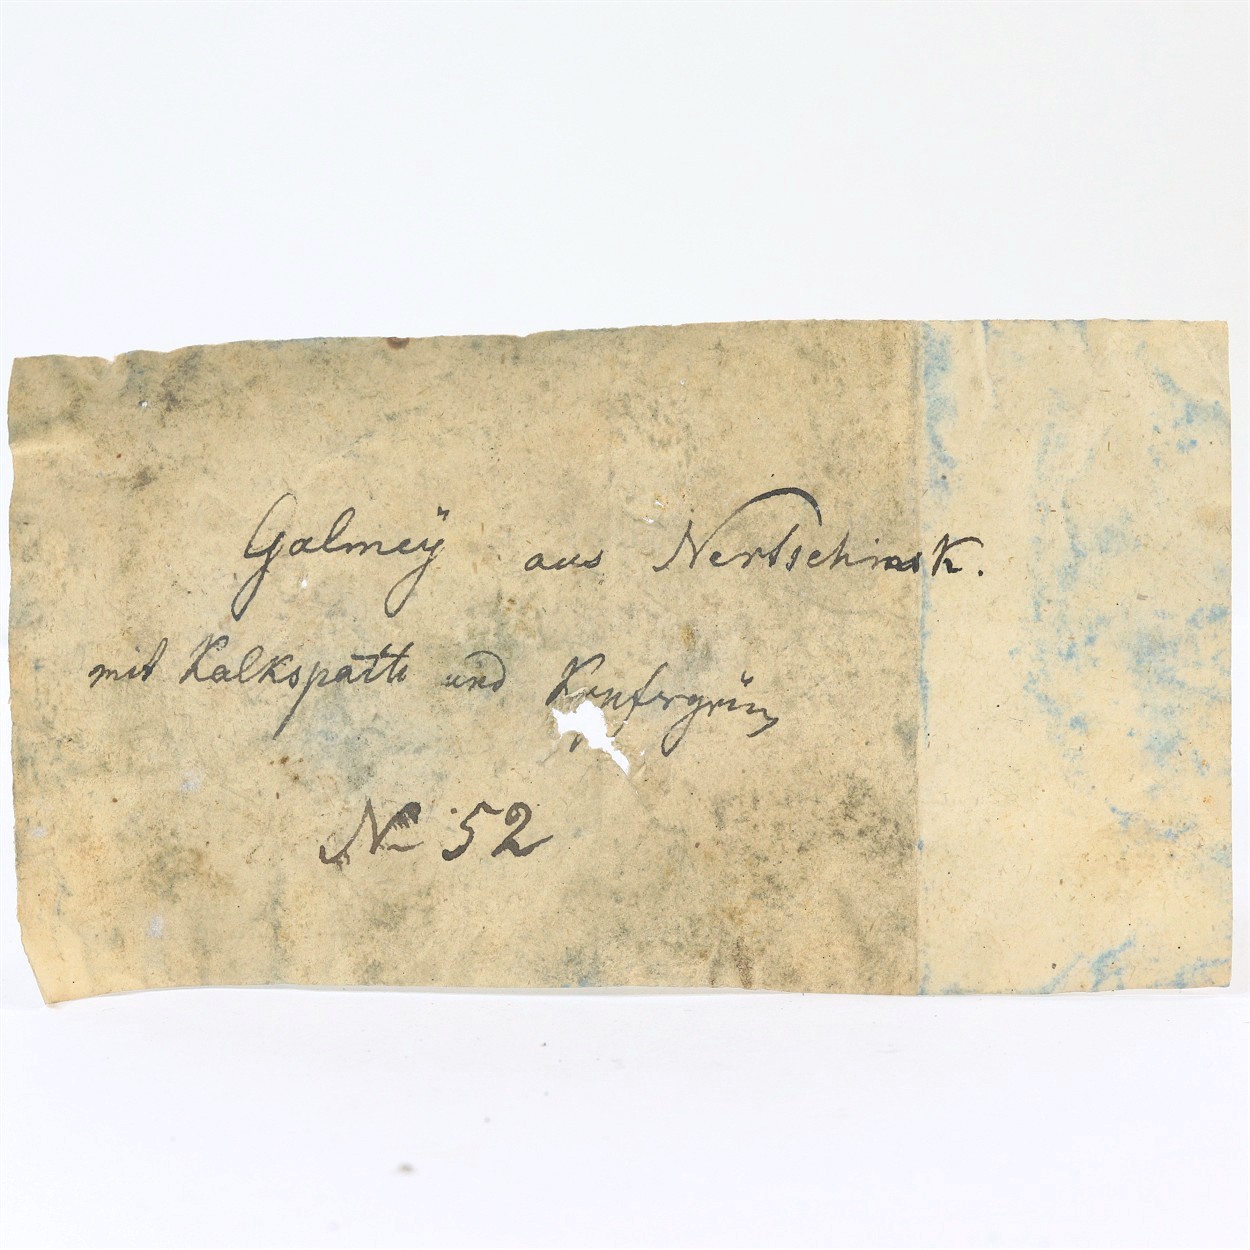 Galmeÿ aus Nertschinsk.
mit Kalkspath und Kupfergrün
No 52